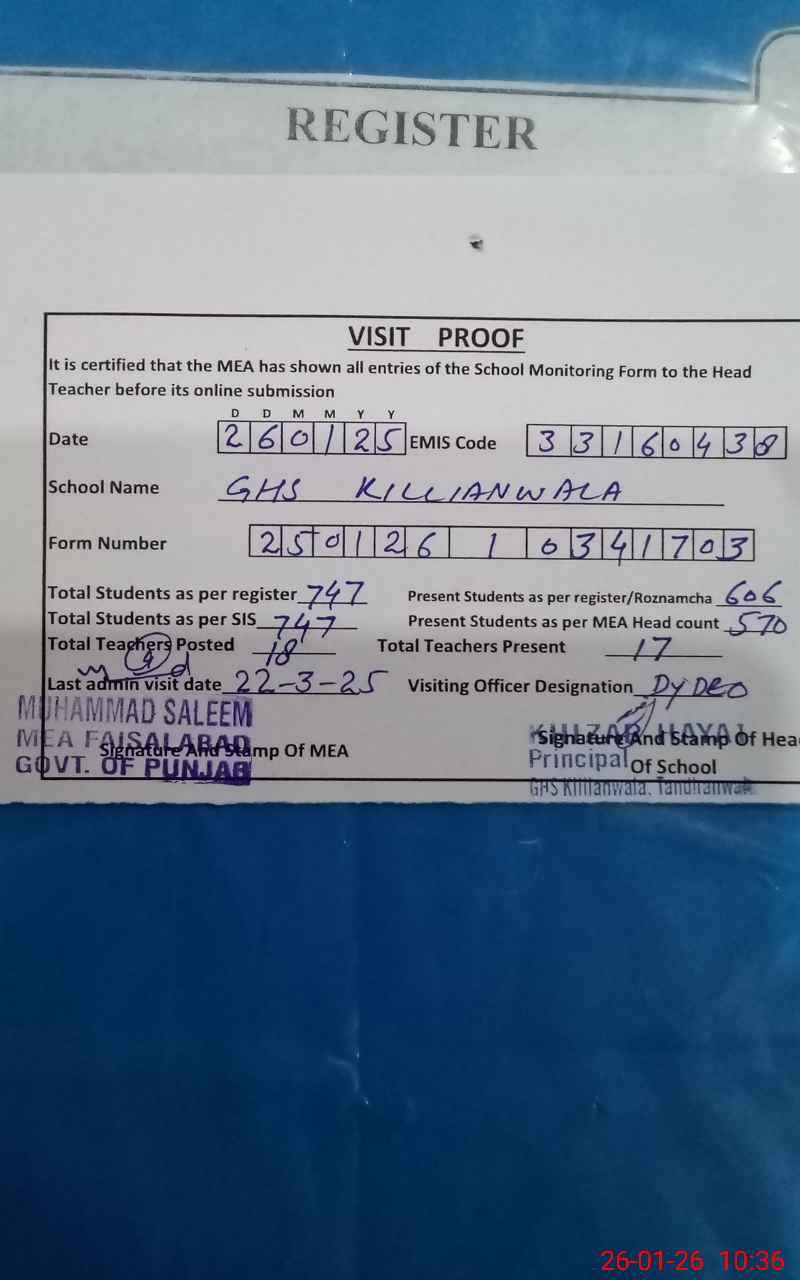 REGISTER
VISIT PROOF
It is certified that the MEA has shown all entries of the School Monitoring Form to the Head
Teacher before its online submission
D D M M Y Y
Date 260125 EMIS Code 33160438
School Name GHS KILLIANWALA
Form Number 250126 1 0341703
Total Students as per register 747 Present Students as per register/Roznamcha 606
Total Students as per SIS 747 Present Students as per MEA Head count 570
Total Teachers Posted 18 Total Teachers Present 17
Last admin visit date 22-3-25 Visiting Officer Designation DY DEO
MUHAMMAD SALEEM
MEA FAISALABAD
GOVT. OF PUNJAB
Signature And Stamp Of MEA
KHIZAR HAYAT
Signature And Stamp Of Hea
Principal Of School
GHS Killianwala,
26-01-26 10:36